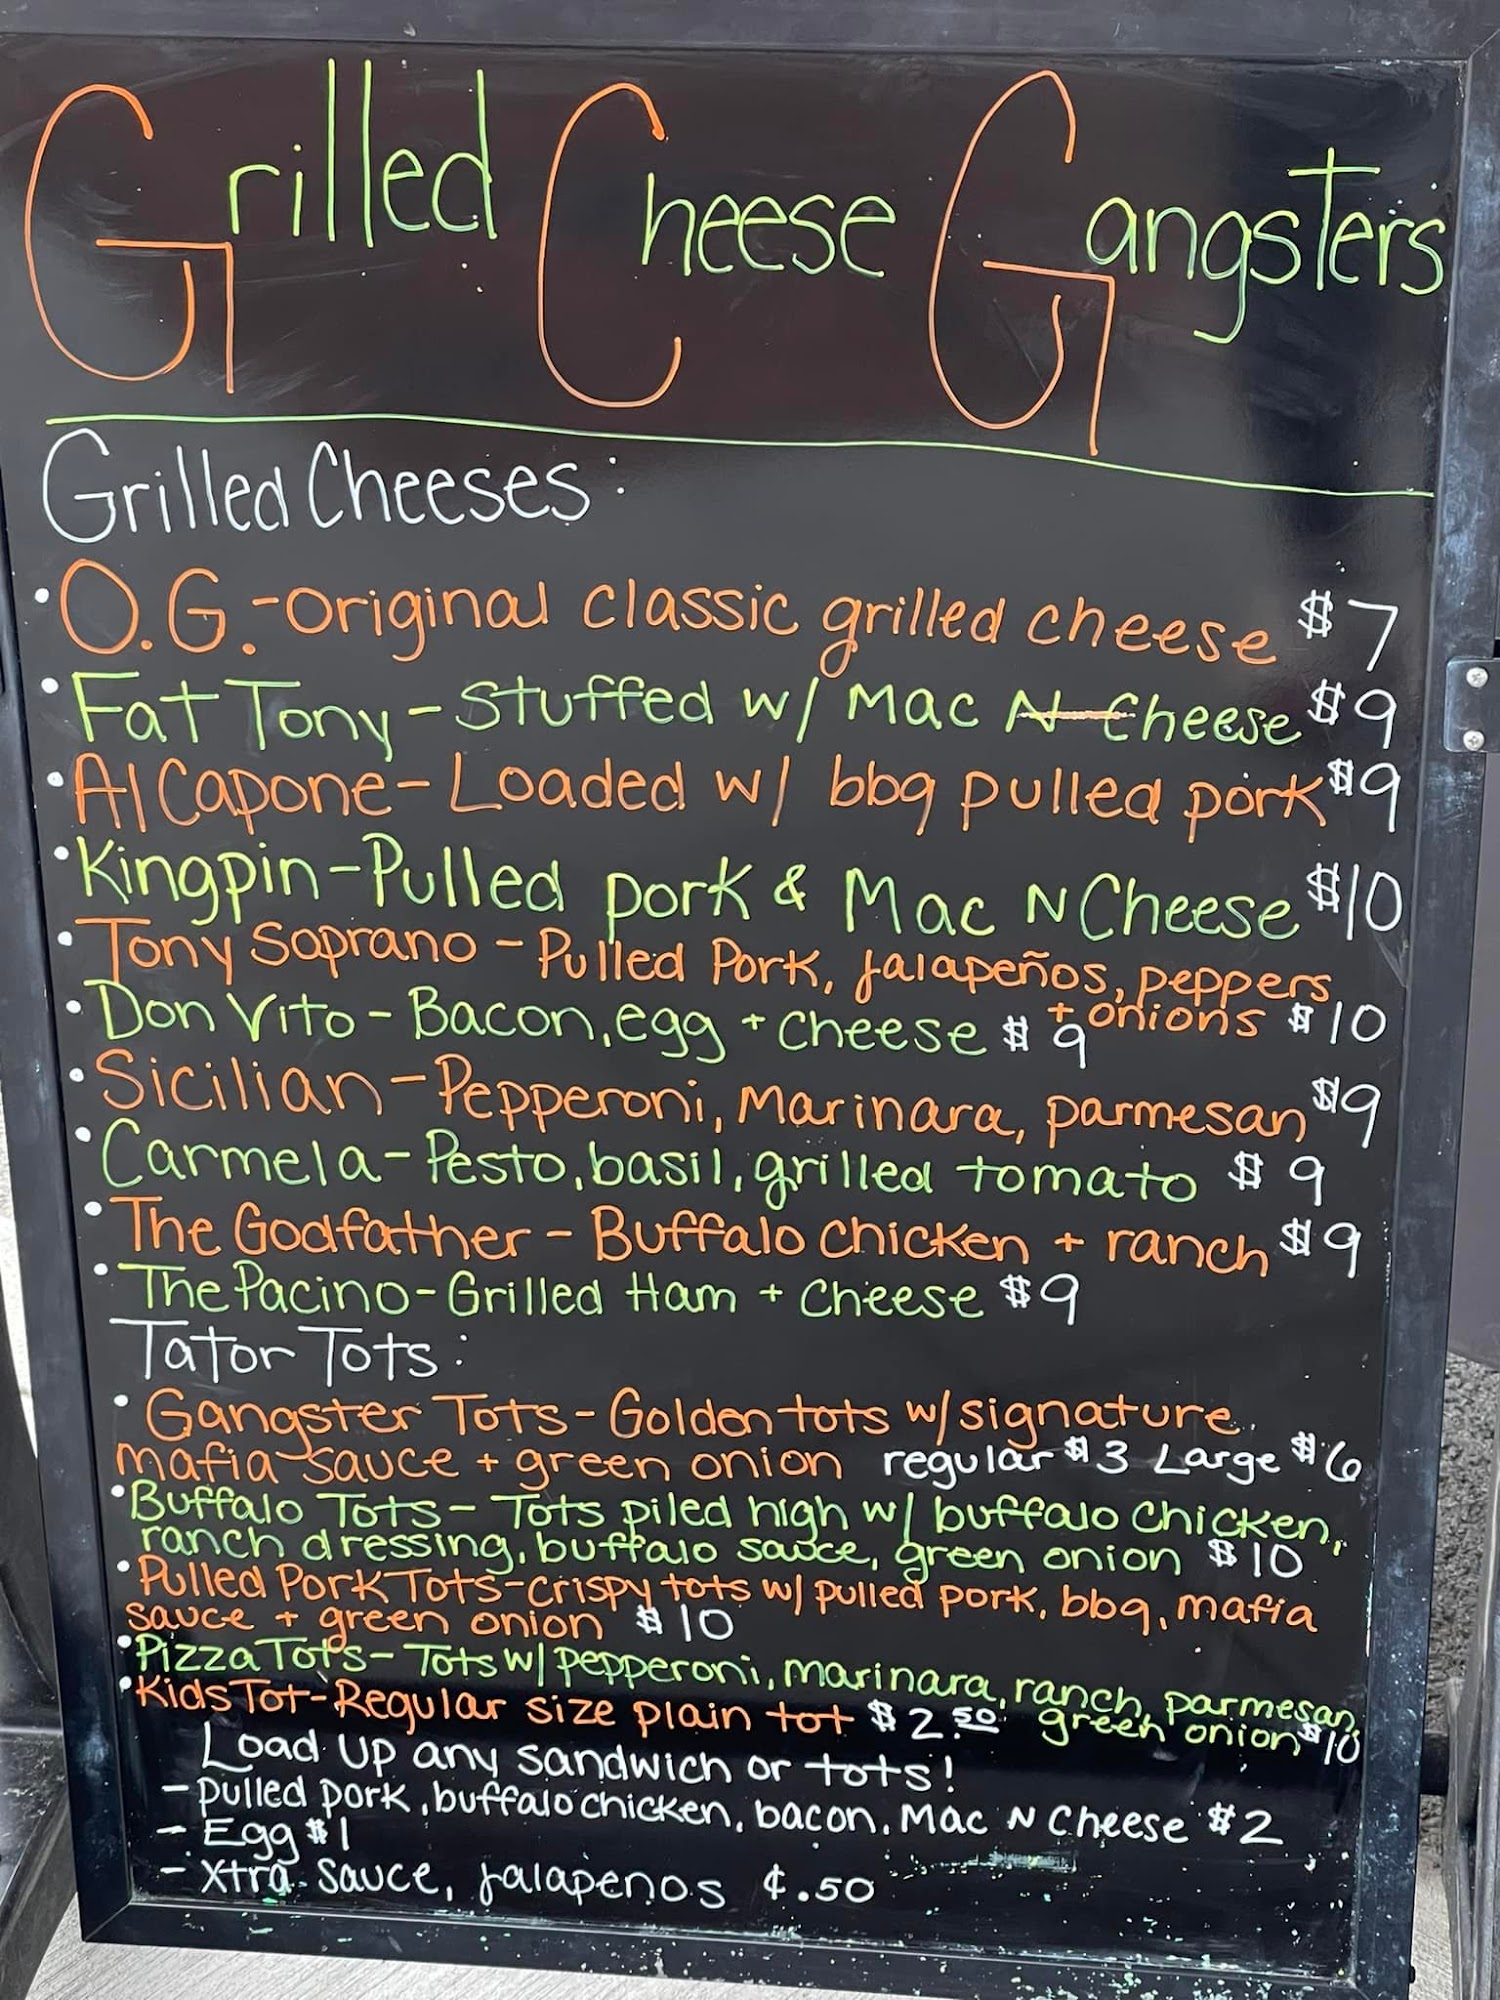 Grilled Cheese Gangsters
Grilled Cheeses:
• O.G.-original classic grilled cheese $7
• Fat Tony - Stuffed w/ Mac N Cheese $9
• Al Capone - Loaded w/ bbq pulled pork $9
• Kingpin - Pulled pork & Mac N Cheese $10
• Tony Soprano - Pulled Pork, jalapeños, peppers
+ onions $10
• Don Vito - Bacon, egg + cheese $9
• Sicilian - Pepperoni, Marinara, parmesan $9
• Carmela - Pesto, basil, grilled tomato $9
• The Godfather - Buffalo chicken + ranch $9
• The Pacino - Grilled Ham + Cheese $9
Tator Tots:
• Gangster Tots - Golden tots w/ signature
mafia sauce + green onion regular $3 Large $6
• Buffalo Tots - Tots piled high w/ buffalo chicken,
ranch dressing, buffalo sauce, green onion $10
• Pulled Pork Tots - crispy tots w/ pulled pork, bbq, mafia
sauce + green onion $10
• Pizza Tots - Tots w/ pepperoni, marinara, ranch, parmesan,
green onion $10
• Kids Tot - Regular size plain tot $2.50
Load up any sandwich or tots!
- pulled pork, buffalo chicken, bacon, Mac N Cheese $2
- Egg $1
- Xtra sauce, jalapenos ¢.50